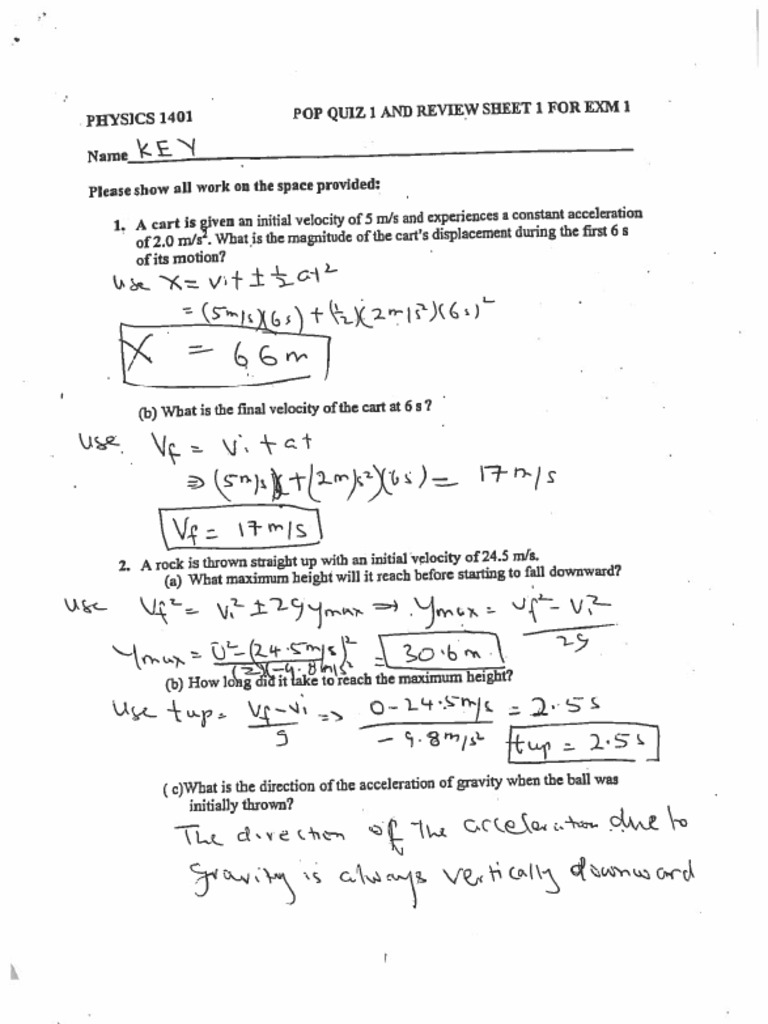 PHYSICS 1401 POP QUIZ 1 AND REVIEW SHEET 1 FOR EXM 1
Name KEY
Please show all work on the space provided:
1. A cart is given an initial velocity of 5 m/s and experiences a constant acceleration
of 2.0 m/s². What is the magnitude of the cart's displacement during the first 6 s
of its motion?
Use X = vit ± ½ at²
= (5m/s)(6s) + (½)(2m/s²)(6s)²
X = 66m
(b) What is the final velocity of the cart at 6 s ?
Use Vf = Vi + at
⇒ (5m/s) + (2m/s²)(6s) = 17 m/s
Vf = 17 m/s
2. A rock is thrown straight up with an initial velocity of 24.5 m/s.
(a) What maximum height will it reach before starting to fall downward?
Use Vf² = Vi² ± 2g ymax ⇒ Ymax = Vf² - Vi² / 2g
Ymax = 0² - (24.5m/s)² / (2)(-9.8m/s² = 30.6m
(b) How long did it take to reach the maximum height?
Use tup = Vf - Vi / g ⇒ 0 - 24.5m/s / - 9.8 m/s² = 2.5 s
tup = 2.5 s
( c)What is the direction of the acceleration of gravity when the ball was
initially thrown?
The direction of the acceleration due to
gravity is always vertically downward
1